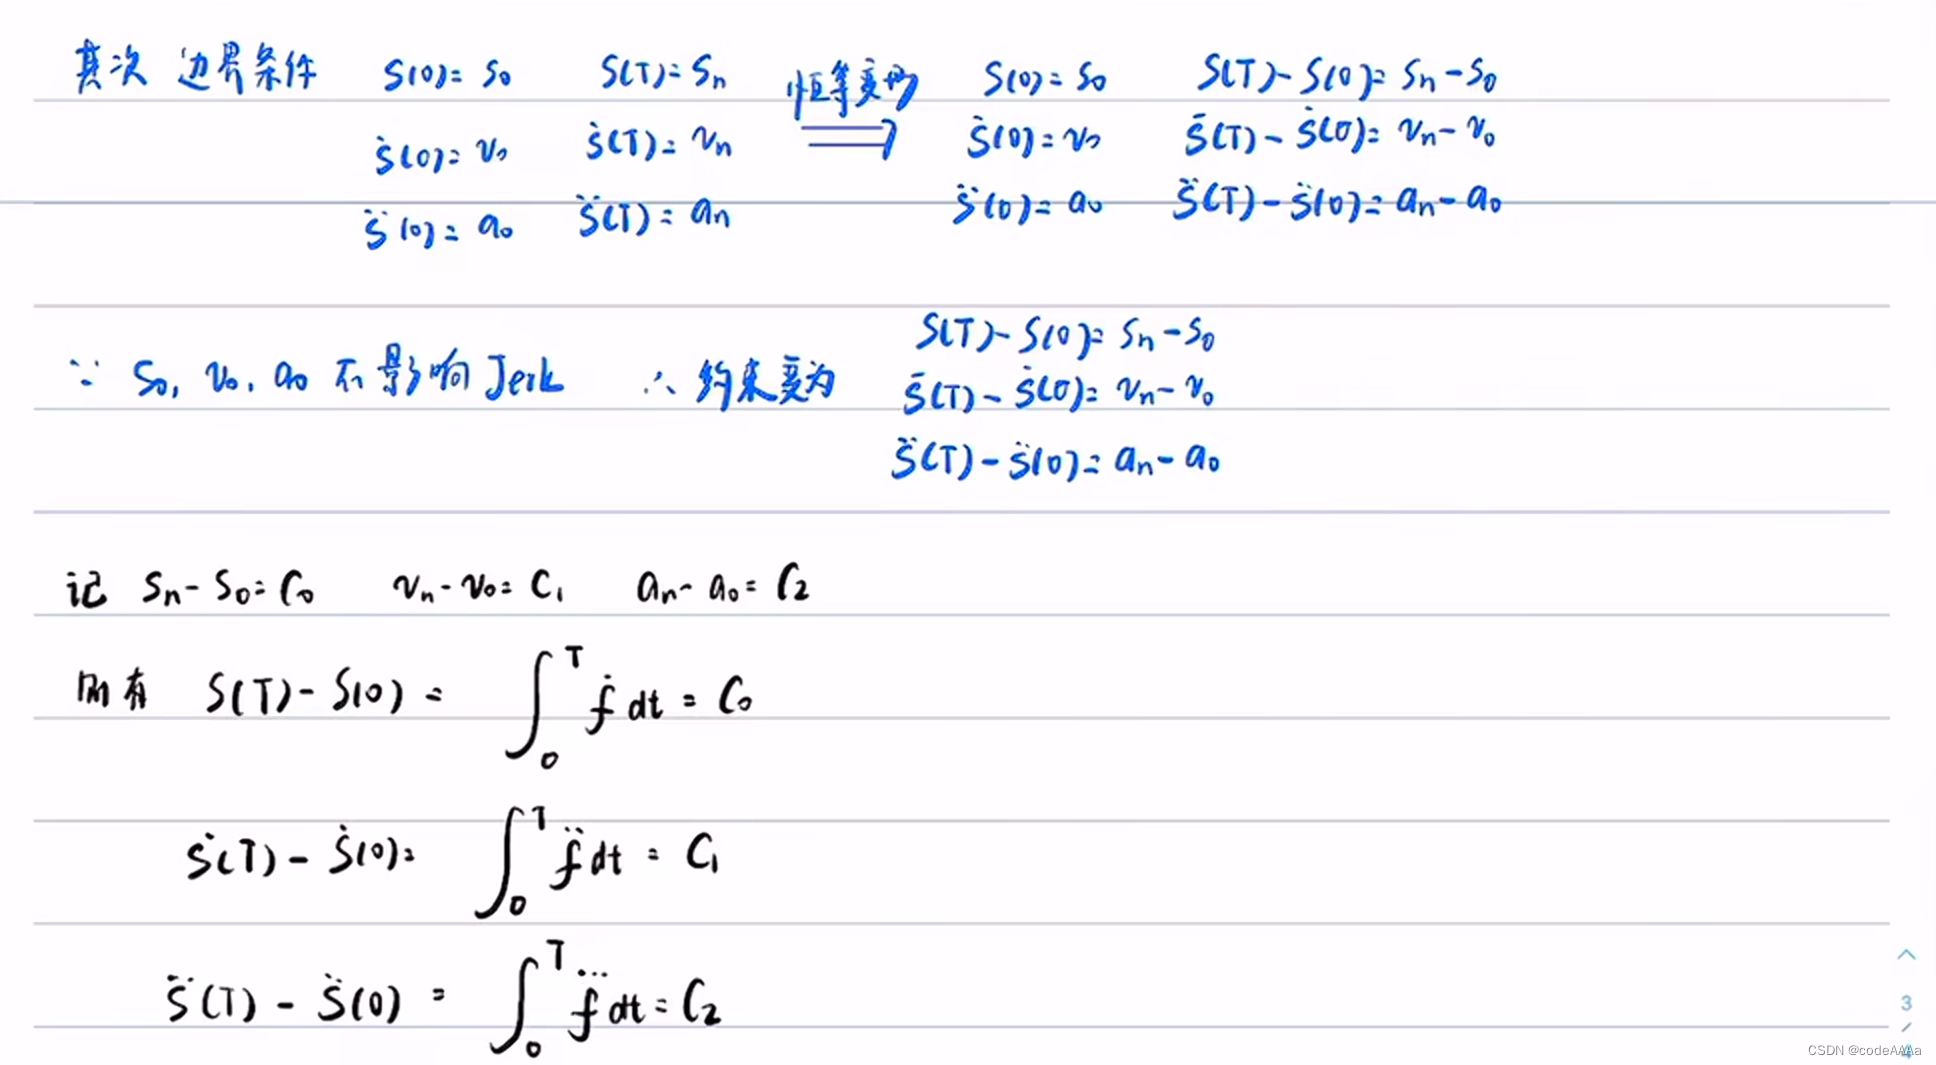 其次 边界条件 S(0)=S₀ S(T)=Sₙ 恒等变形 S(0)=S₀ S(T)-S(0)=Sₙ-S₀
Ṡ(0)=v₀ Ṡ(T)=vₙ ⇒ Ṡ(0)=v₀ Ṡ(T)-Ṡ(0)=vₙ-v₀
S̈(0)=a₀ S̈(T)=aₙ S̈(0)=a₀ S̈(T)-S̈(0)=aₙ-a₀
S(T)-S(0)=Sₙ-S₀
∵ S₀, v₀, a₀ 不影响 Jerk ∴ 约束变为 Ṡ(T)-Ṡ(0)=vₙ-v₀
S̈(T)-S̈(0)=aₙ-a₀
记 Sₙ-S₀=C₀ vₙ-v₀=C₁ aₙ-a₀=C₂
则有 S(T)-S(0) = ∫₀ᵀ ḟ dt = C₀
Ṡ(T)-Ṡ(0)= ∫₀ᵀ f̈ dt = C₁
S̈(T)-S̈(0) = ∫₀ᵀ f⃛ dt = C₂
3
/
4
CSDN @codeAAAa